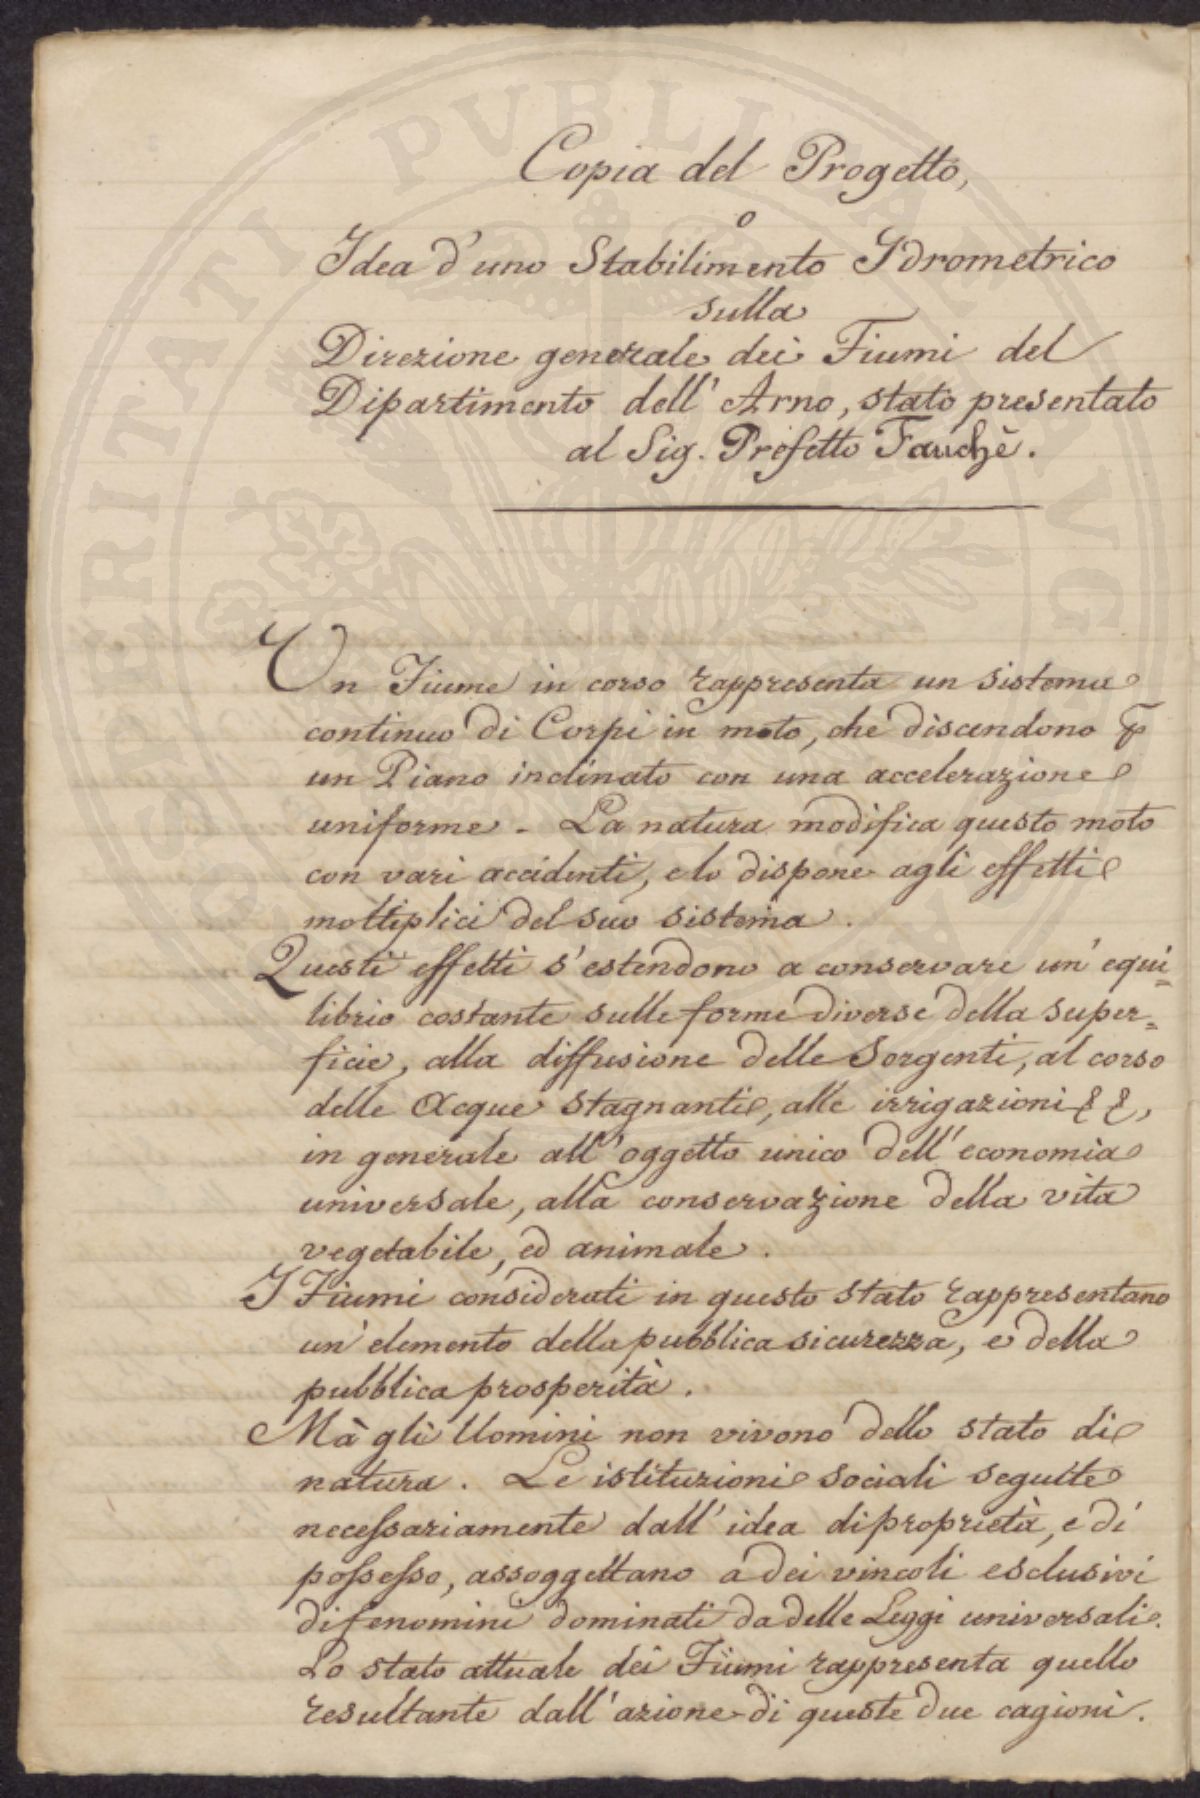 Copia del Progetto,
o
Idea d'uno Stabilimento Idrometrico
sulla
Direzione generale dei Fiumi del
Dipartimento dell'Arno, stato presentato
al Sig. Prefetto Fauchè.
Un Fiume in corso rappresenta un sistema
continuo di Corpi in moto, che discendono ꝑ
un Piano inclinato con una accelerazione
uniforme. La natura modifica questo moto
con vari accidenti, e lo dispone agli effetti
moltiplici del suo sistema.
Questi effetti s'estendono a conservare un' equi=
librio costante sulle forme diverse della super=
ficie, alla diffusione delle Sorgenti, al corso
delle Acque stagnanti, alle irrigazioni &&,
in generale all'oggetto unico dell'economia
universale, alla conservazione della vita
vegetabile, ed animale.
I Fiumi considerati in questo stato rappresentano
un' elemento della pubblica sicurezza, e della
pubblica prosperità.
Mà gli Uomini non vivono dello stato di
natura. Le istituzioni sociali seguite
necessariamente dall'idea di proprietà, e di
possesso, assoggettano a dei vincoli esclusivi
di fenomini dominati da delle Leggi universali.
Lo stato attuale dei Fiumi rappresenta quello
resultante dall'azione di queste due cagioni.
PROSPERITATI PUBLICAE AUG